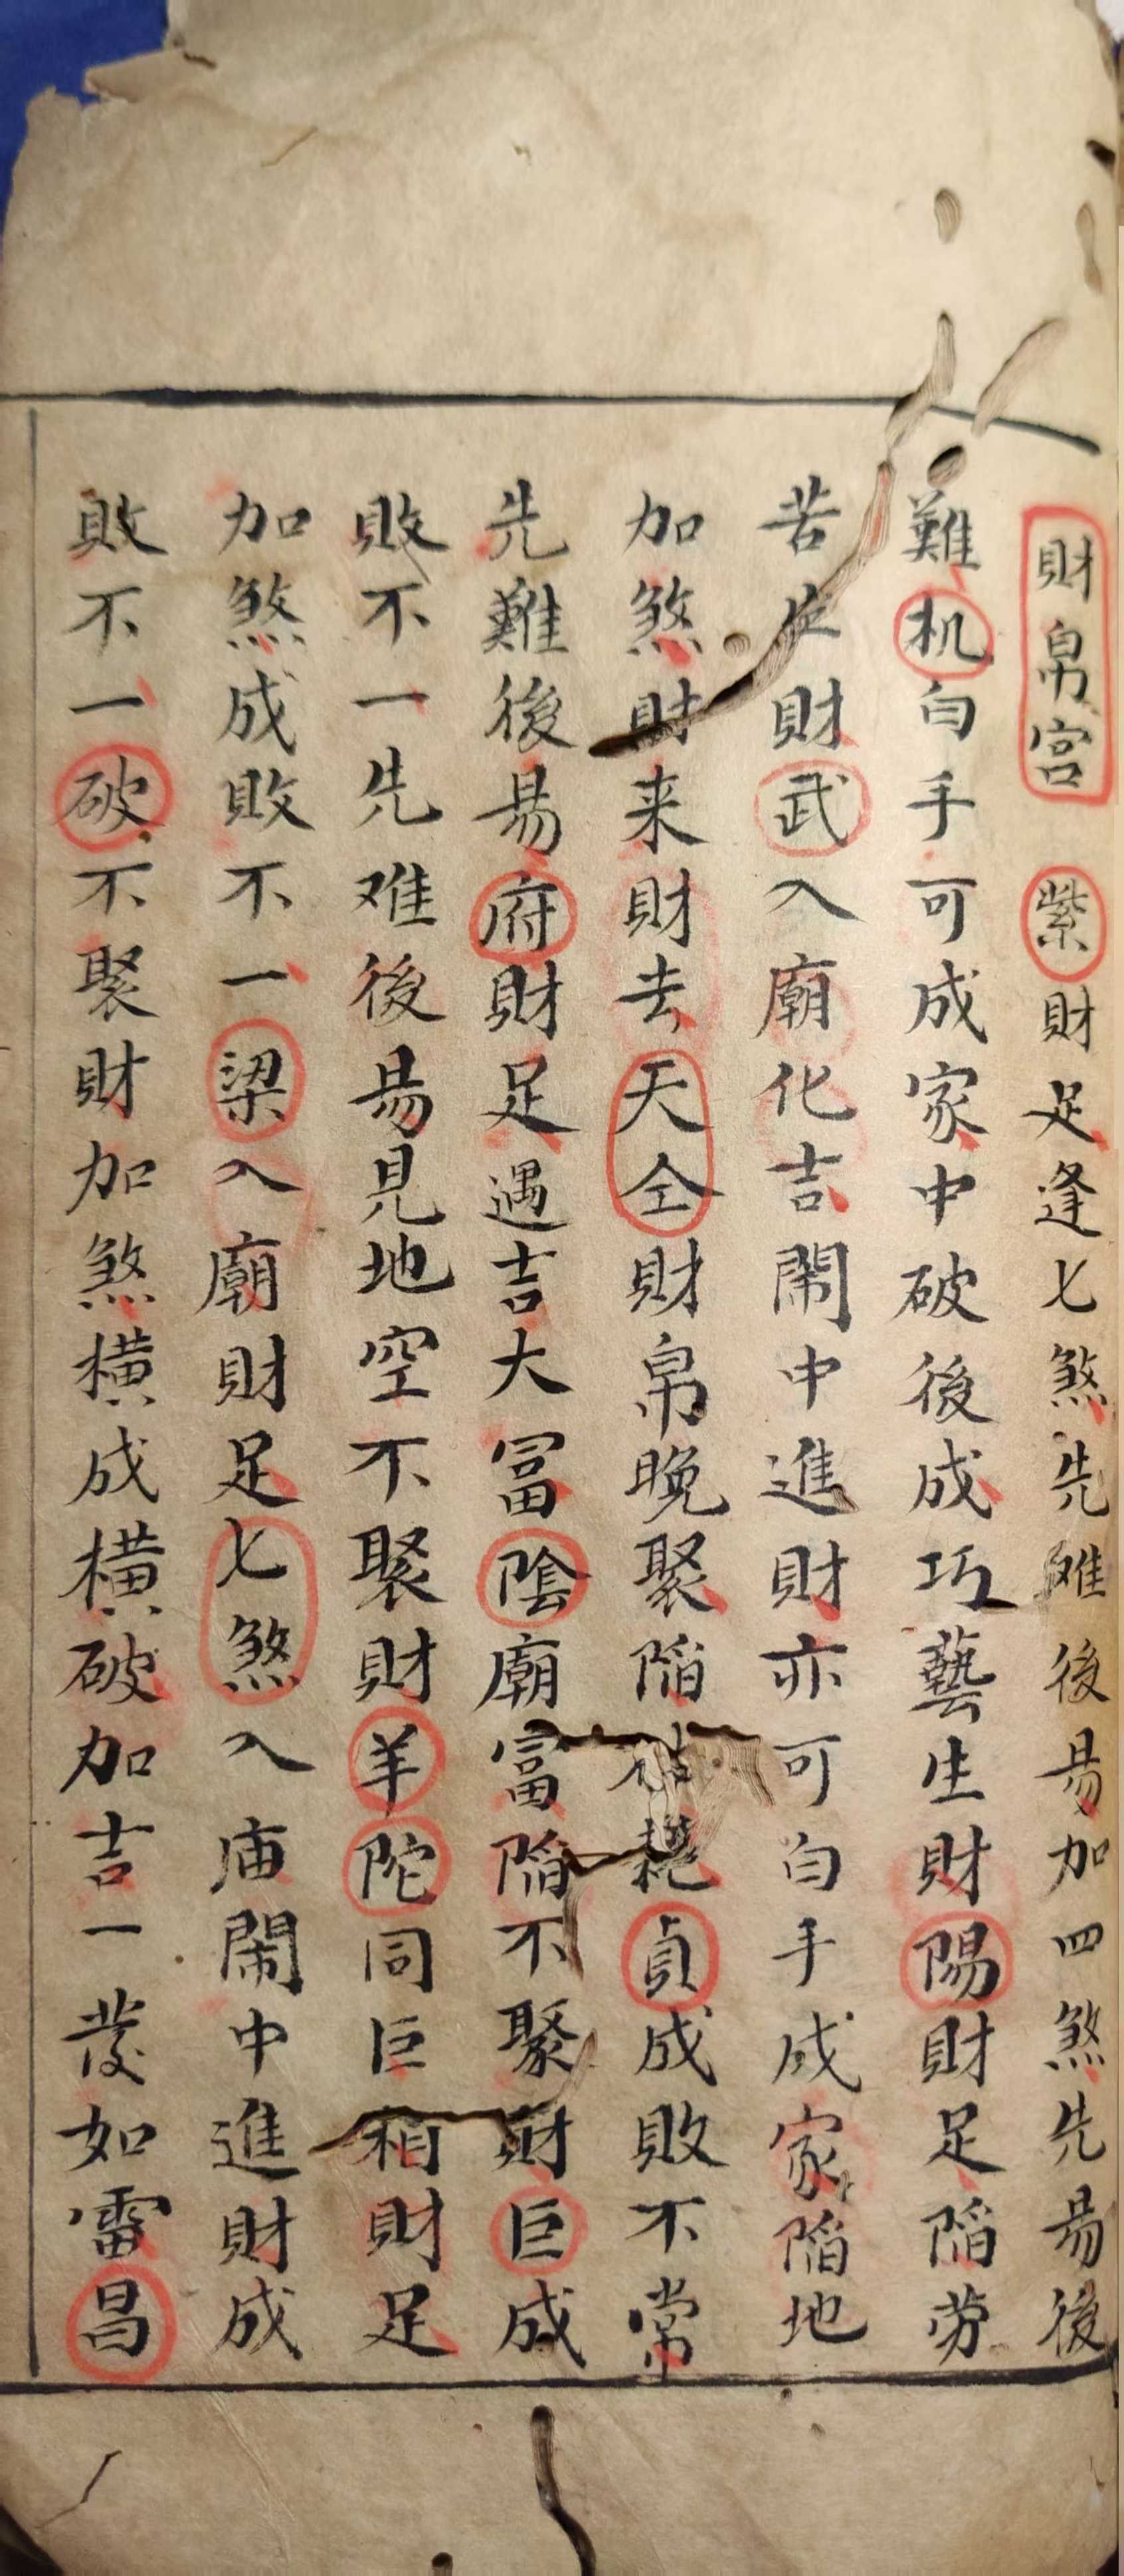 財帛宮 紫財足逢七煞先难後易加四煞先易後
難机白手可成家中破後成巧藝生財陽財足陷劳
苦生財武入廟化吉鬧中進財亦可白手成家陷地
加煞財来財去天仝財帛晚聚陷破耗貞成敗不常
先難後易府財足遇吉大冨陰廟富陷不聚財巨成
敗不一先难後易見地空不聚財羊陀同巨相財足
加煞成敗不一梁入廟財足七煞入庙鬧中進財成
敗不一破不聚財加煞橫成橫破加吉一发如雷昌